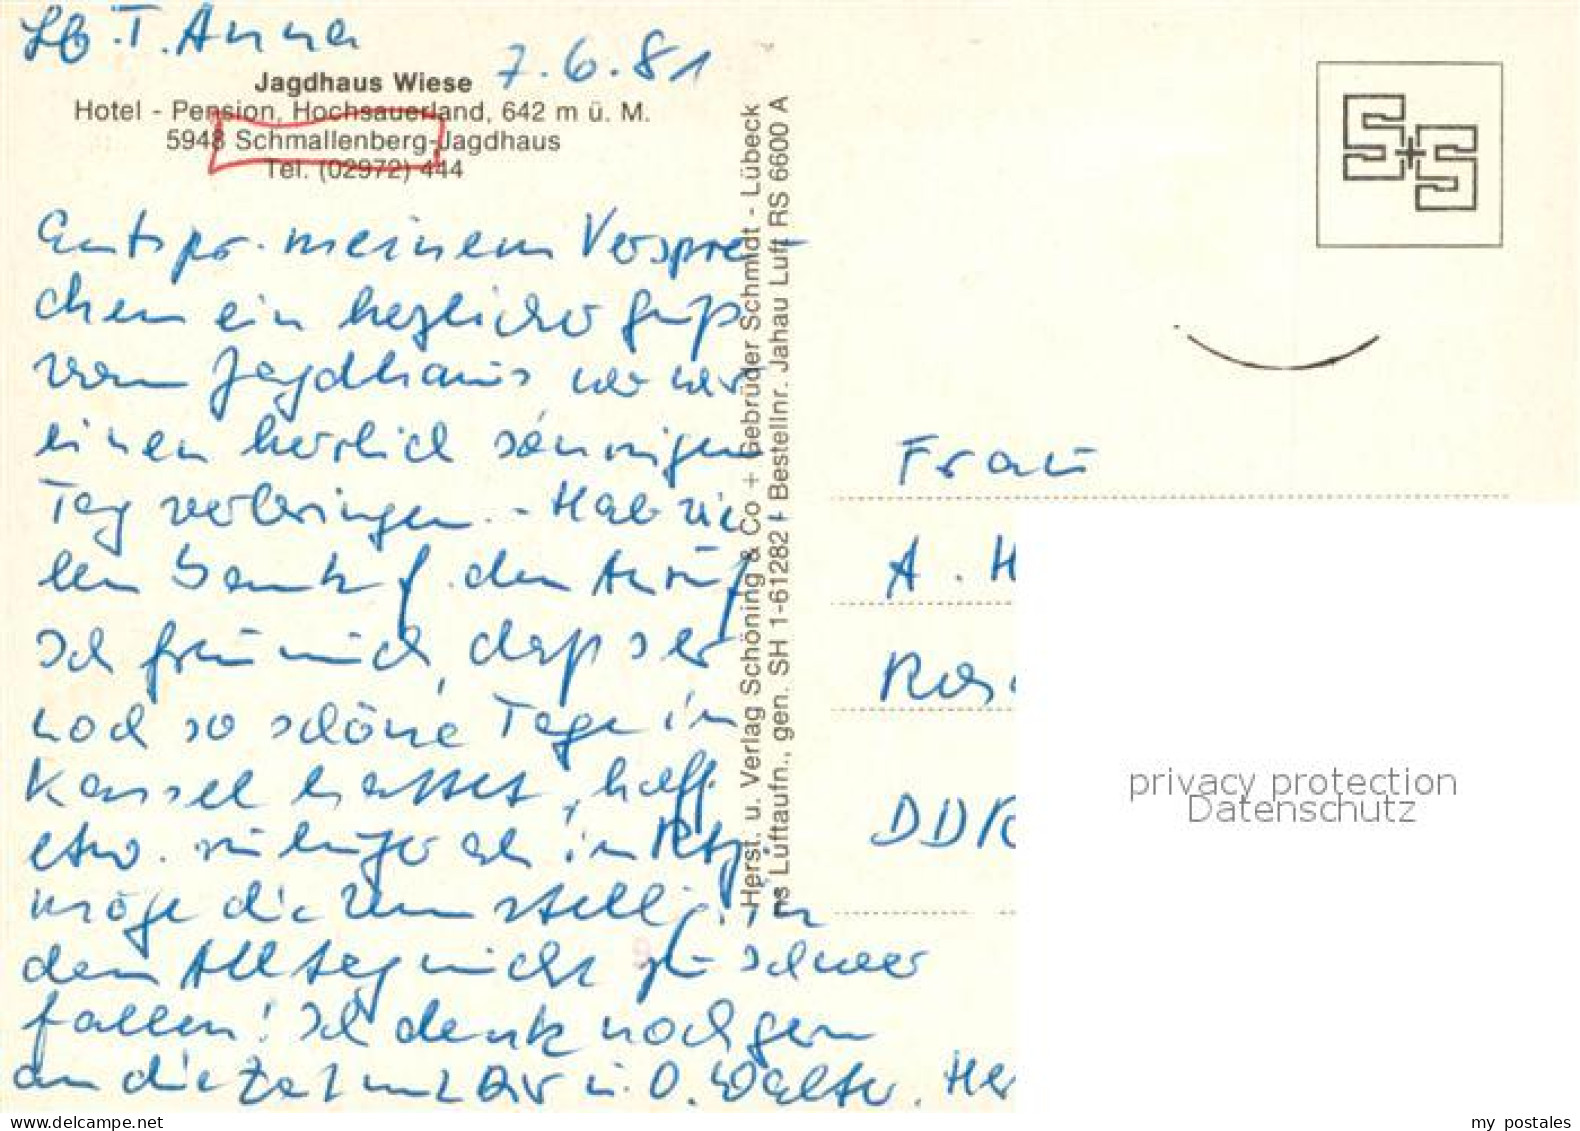 Lb. T. Anna
7.6.81
Jagdhaus Wiese
Hotel - Pension, Hochsauerland, 642 m ü. M.
5948 Schmallenberg-Jagdhaus
Tel. (02972) 444
Entspr. meinem Verspre-
chen ein herzlicher Gruß
vom Jagdhaus wo wir
einen herrlich sonnigen
Tag verbringen. - Hab vie
len Dank f. den Anruf
Ich freu mich, daß Ihr
noch so schöne Tage in
Kassel hattet, hoff
etw. ruhiger als in
möge die Umstellg. in
den Alltag nicht zu schwer
fallen! Ich denk noch gern
an die Zeit mit Dir u. O. Walter. Her
Herst. u. Verlag Schöning & Co + Gebrüder Schmidt - Lübeck
ns Luftaufn., gen. SH 1-61282 + Bestellnr. Jahau Luft RS 6600 A
S+S
Frau
A. H
DDR
privacy protection
Datenschutz
my postales